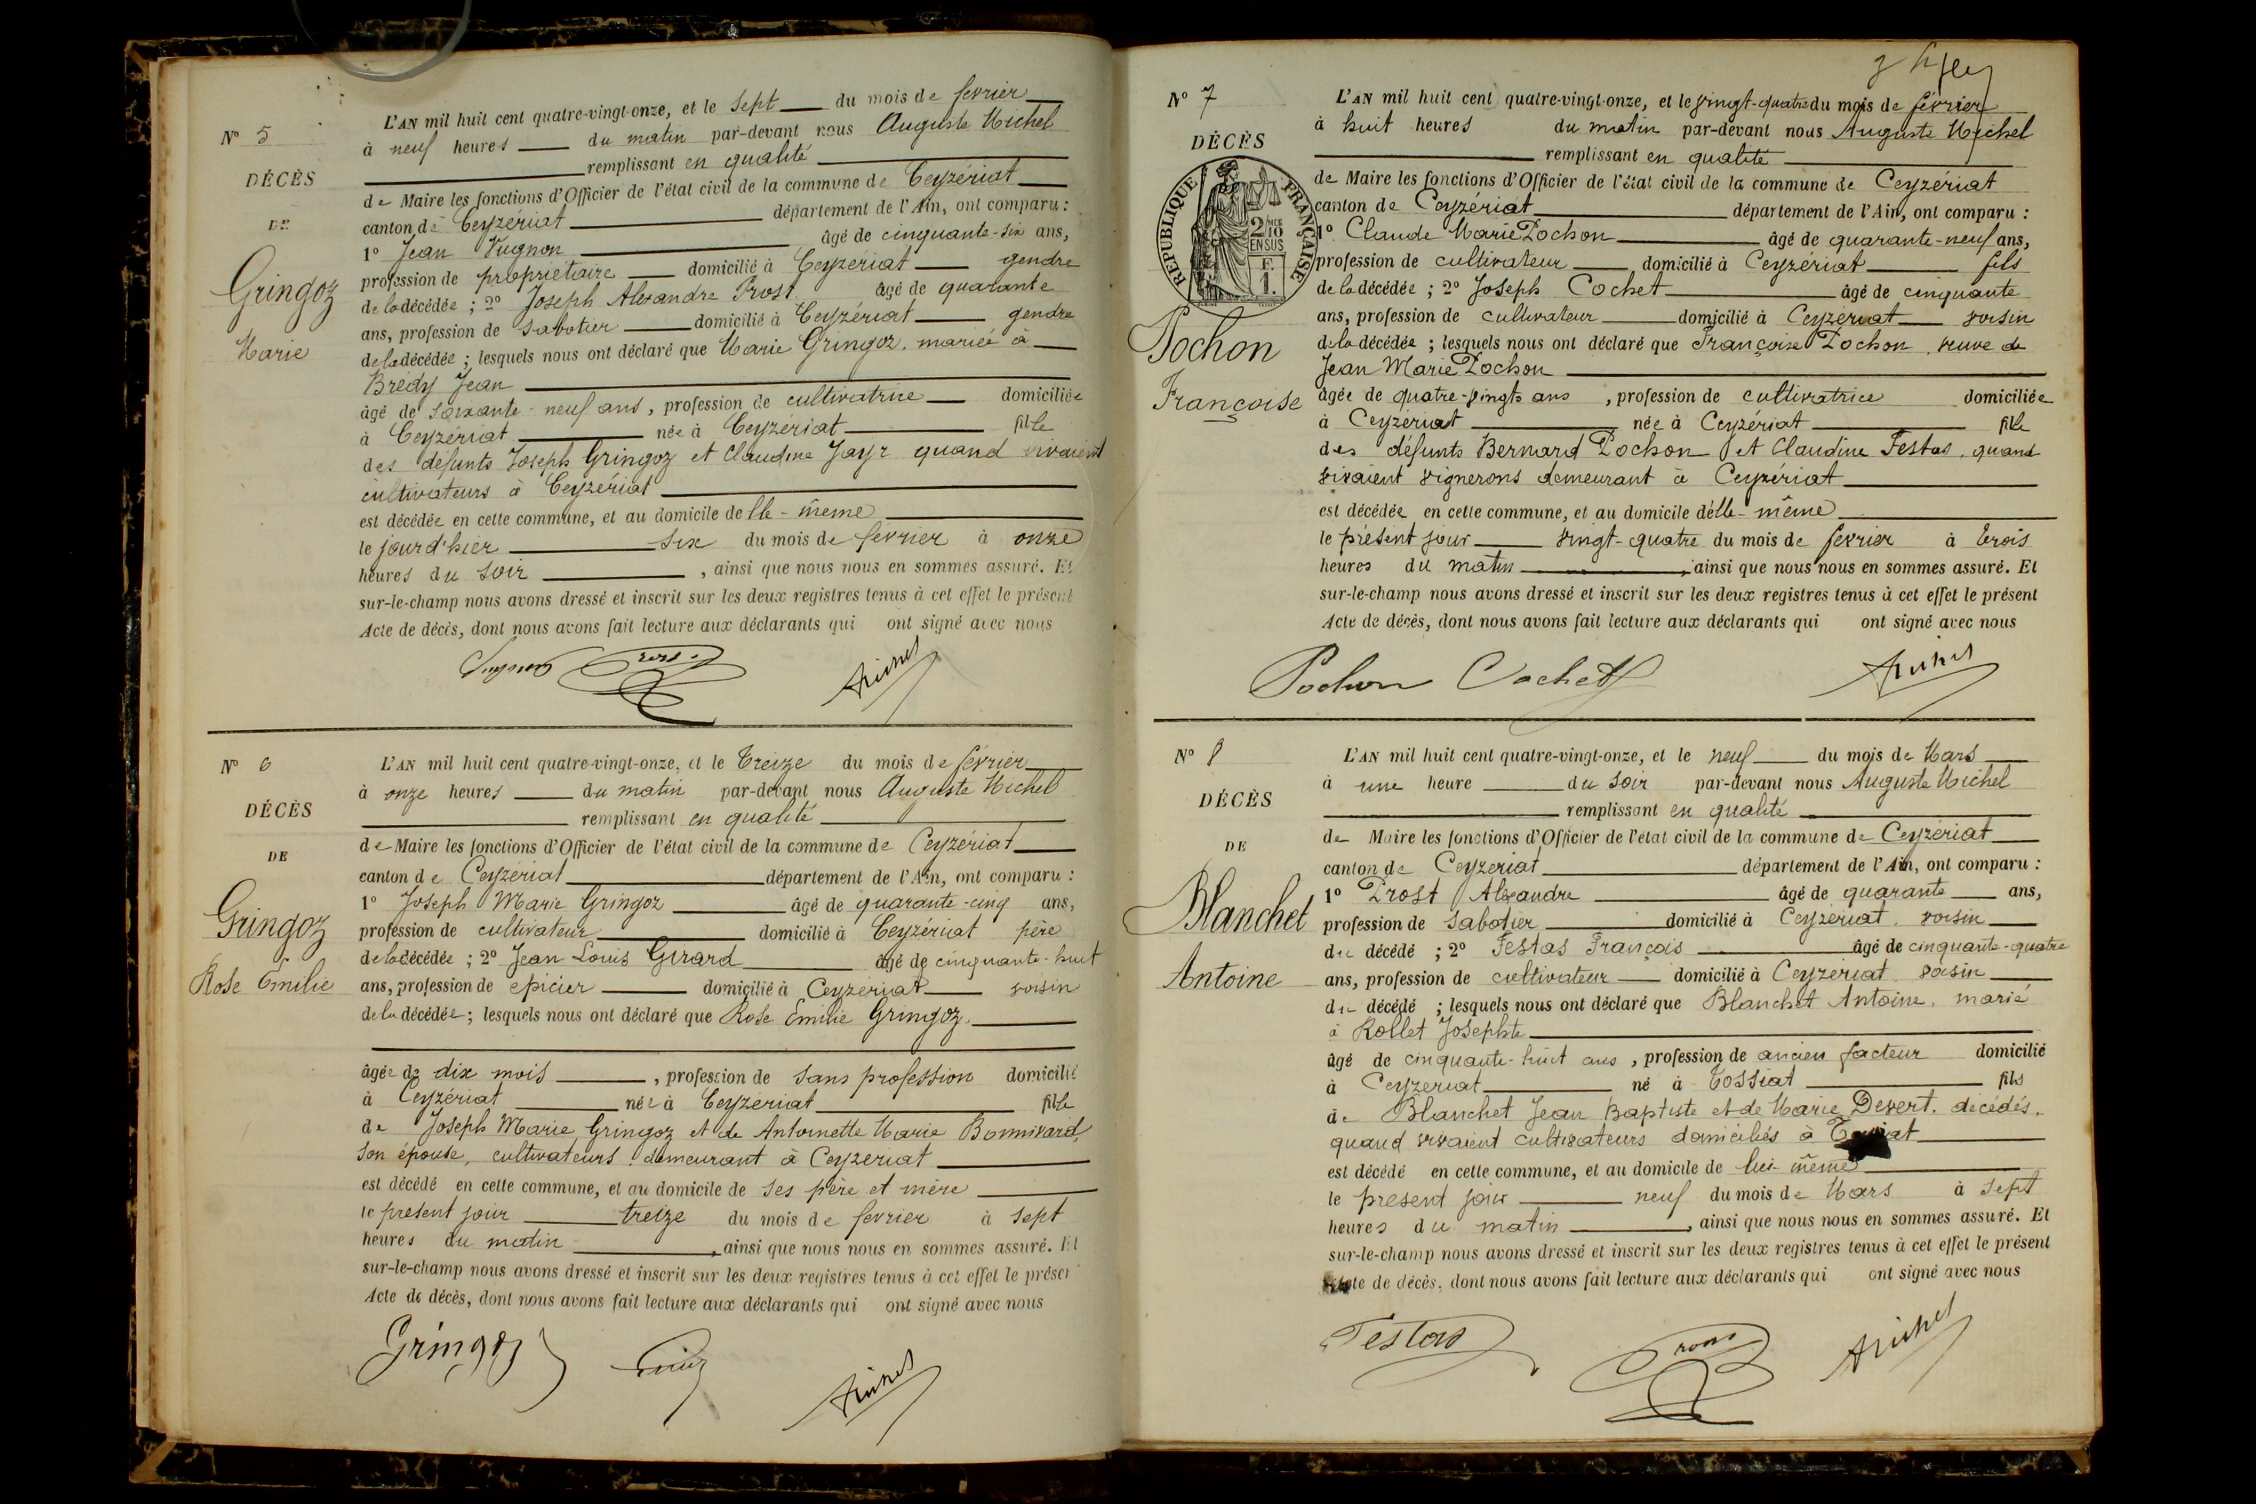 N° 5
DÉCÈS
DE
Gringoz
Marie
L'AN mil huit cent quatre-vingt-onze, et le sept du mois de février
à neuf heures du matin par-devant nous Auguste Michel
remplissant en qualité
de Maire les fonctions d'Officier de l'état civil de la commune de Ceyzériat
canton de Ceyzériat département de l'Ain, ont comparu :
1° Jean Vugnon âgé de cinquante-six ans,
profession de propriétaire domicilié à Ceyzériat gendre
de la décédée ; 2° Joseph Alexandre Prost âgé de quarante
ans, profession de sabotier domicilié à Ceyzériat gendre
de la décédée ; lesquels nous ont déclaré que Marie Gringoz, mariée à
Brédy Jean
âgé de soixante-neuf ans, profession de cultivatrice domiciliée
à Ceyzériat née à Ceyzériat fille
des défunts Joseph Gringoz et Claudine Jayr quand vivaient
cultivateurs à Ceyzériat
est décédée en cette commune, et au domicile de lle-même
le jour d'hier six du mois de février à onze
heures du soir , ainsi que nous nous en sommes assuré. Et
sur-le-champ nous avons dressé et inscrit sur les deux registres tenus à cet effet le présent
Acte de décès, dont nous avons fait lecture aux déclarants qui ont signé avec nous
Prost Michel
N° 6
DÉCÈS
DE
Gringoz
Rose Emilie
L'AN mil huit cent quatre-vingt-onze, et le treize du mois de février
à onze heures du matin par-devant nous Auguste Michel
remplissant en qualité
de Maire les fonctions d'Officier de l'état civil de la commune de Ceyzériat
canton de Ceyzériat département de l'Ain, ont comparu :
1° Joseph Marie Gringoz âgé de quarante-cinq ans,
profession de cultivateur domicilié à Ceyzériat père
de la décédée ; 2° Jean Louis Girard âgé de cinquante-huit
ans, profession de épicier domicilié à Ceyzériat voisin
de la décédée ; lesquels nous ont déclaré que Rose Emilie Gringoz,
âgée de dix mois , profession de sans profession domicilié
à Ceyzériat née à Ceyzériat fille
de Joseph Marie Gringoz et de Antoinette Marie Bonnivard,
son épouse, cultivateurs demeurant à Ceyzériat
est décédé en cette commune, et au domicile de ses père et mère
le présent jour treize du mois de février à sept
heures du matin , ainsi que nous nous en sommes assuré. Et
sur-le-champ nous avons dressé et inscrit sur les deux registres tenus à cet effet le présen
Acte de décès, dont nous avons fait lecture aux déclarants qui ont signé avec nous
Gringoz Michel
N° 7
DÉCÈS
RÉPUBLIQUE FRANÇAISE
2/10 EN SUS
F. 1.
Pochon
Françoise
L'AN mil huit cent quatre-vingt-onze, et le vingt-quatre du mois de février
à huit heures du matin par-devant nous Auguste Michel
remplissant en qualité
de Maire les fonctions d'Officier de l'état civil de la commune de Ceyzériat
canton de Ceyzériat département de l'Ain, ont comparu :
1° Claude Marie Pochon âgé de quarante-neuf ans,
profession de cultivateur domicilié à Ceyzériat fils
de la décédée ; 2° Joseph Cochet âgé de cinquante
ans, profession de cultivateur domicilié à Ceyzériat voisin
de la décédée ; lesquels nous ont déclaré que Françoise Pochon, veuve de
Jean Marie Pochon
âgée de quatre-vingts ans , profession de cultivatrice domiciliée
à Ceyzériat née à Ceyzériat fille
des défunts Bernard Pochon et Claudine Festas, quand
vivaient vignerons demeurant à Ceyzériat
est décédée en cette commune, et au domicile d'elle-même
le présent jour vingt-quatre du mois de février à trois
heures du matin , ainsi que nous nous en sommes assuré. Et
sur-le-champ nous avons dressé et inscrit sur les deux registres tenus à cet effet le présent
Acte de décès, dont nous avons fait lecture aux déclarants qui ont signé avec nous
Pochon Cochet Michel
N° 8
DÉCÈS
DE
Blanchet
Antoine
L'AN mil huit cent quatre-vingt-onze, et le neuf du mois de Mars
à une heure du soir par-devant nous Auguste Michel
remplissant en qualité
de Maire les fonctions d'Officier de l'état civil de la commune de Ceyzériat
canton de Ceyzériat département de l'Ain, ont comparu :
1° Prost Alexandre âgé de quarante ans,
profession de sabotier domicilié à Ceyzériat, voisin
du décédé ; 2° Festas François âgé de cinquante-quatre
ans, profession de cultivateur domicilié à Ceyzériat voisin
du décédé ; lesquels nous ont déclaré que Blanchet Antoine, marié
à Rollet Josephte
âgé de cinquante-huit ans , profession de ancien facteur domicilié
à Ceyzériat né à Tossiat fils
de Blanchet Jean Baptiste et de Marie Devert, décédés,
quand vivaient cultivateurs domiciliés à
est décédé en cette commune, et au domicile de lui-même
le présent jour neuf du mois de Mars à sept
heures du matin , ainsi que nous nous en sommes assuré. Et
sur-le-champ nous avons dressé et inscrit sur les deux registres tenus à cet effet le présent
Acte de décès, dont nous avons fait lecture aux déclarants qui ont signé avec nous
Festas Prost Michel